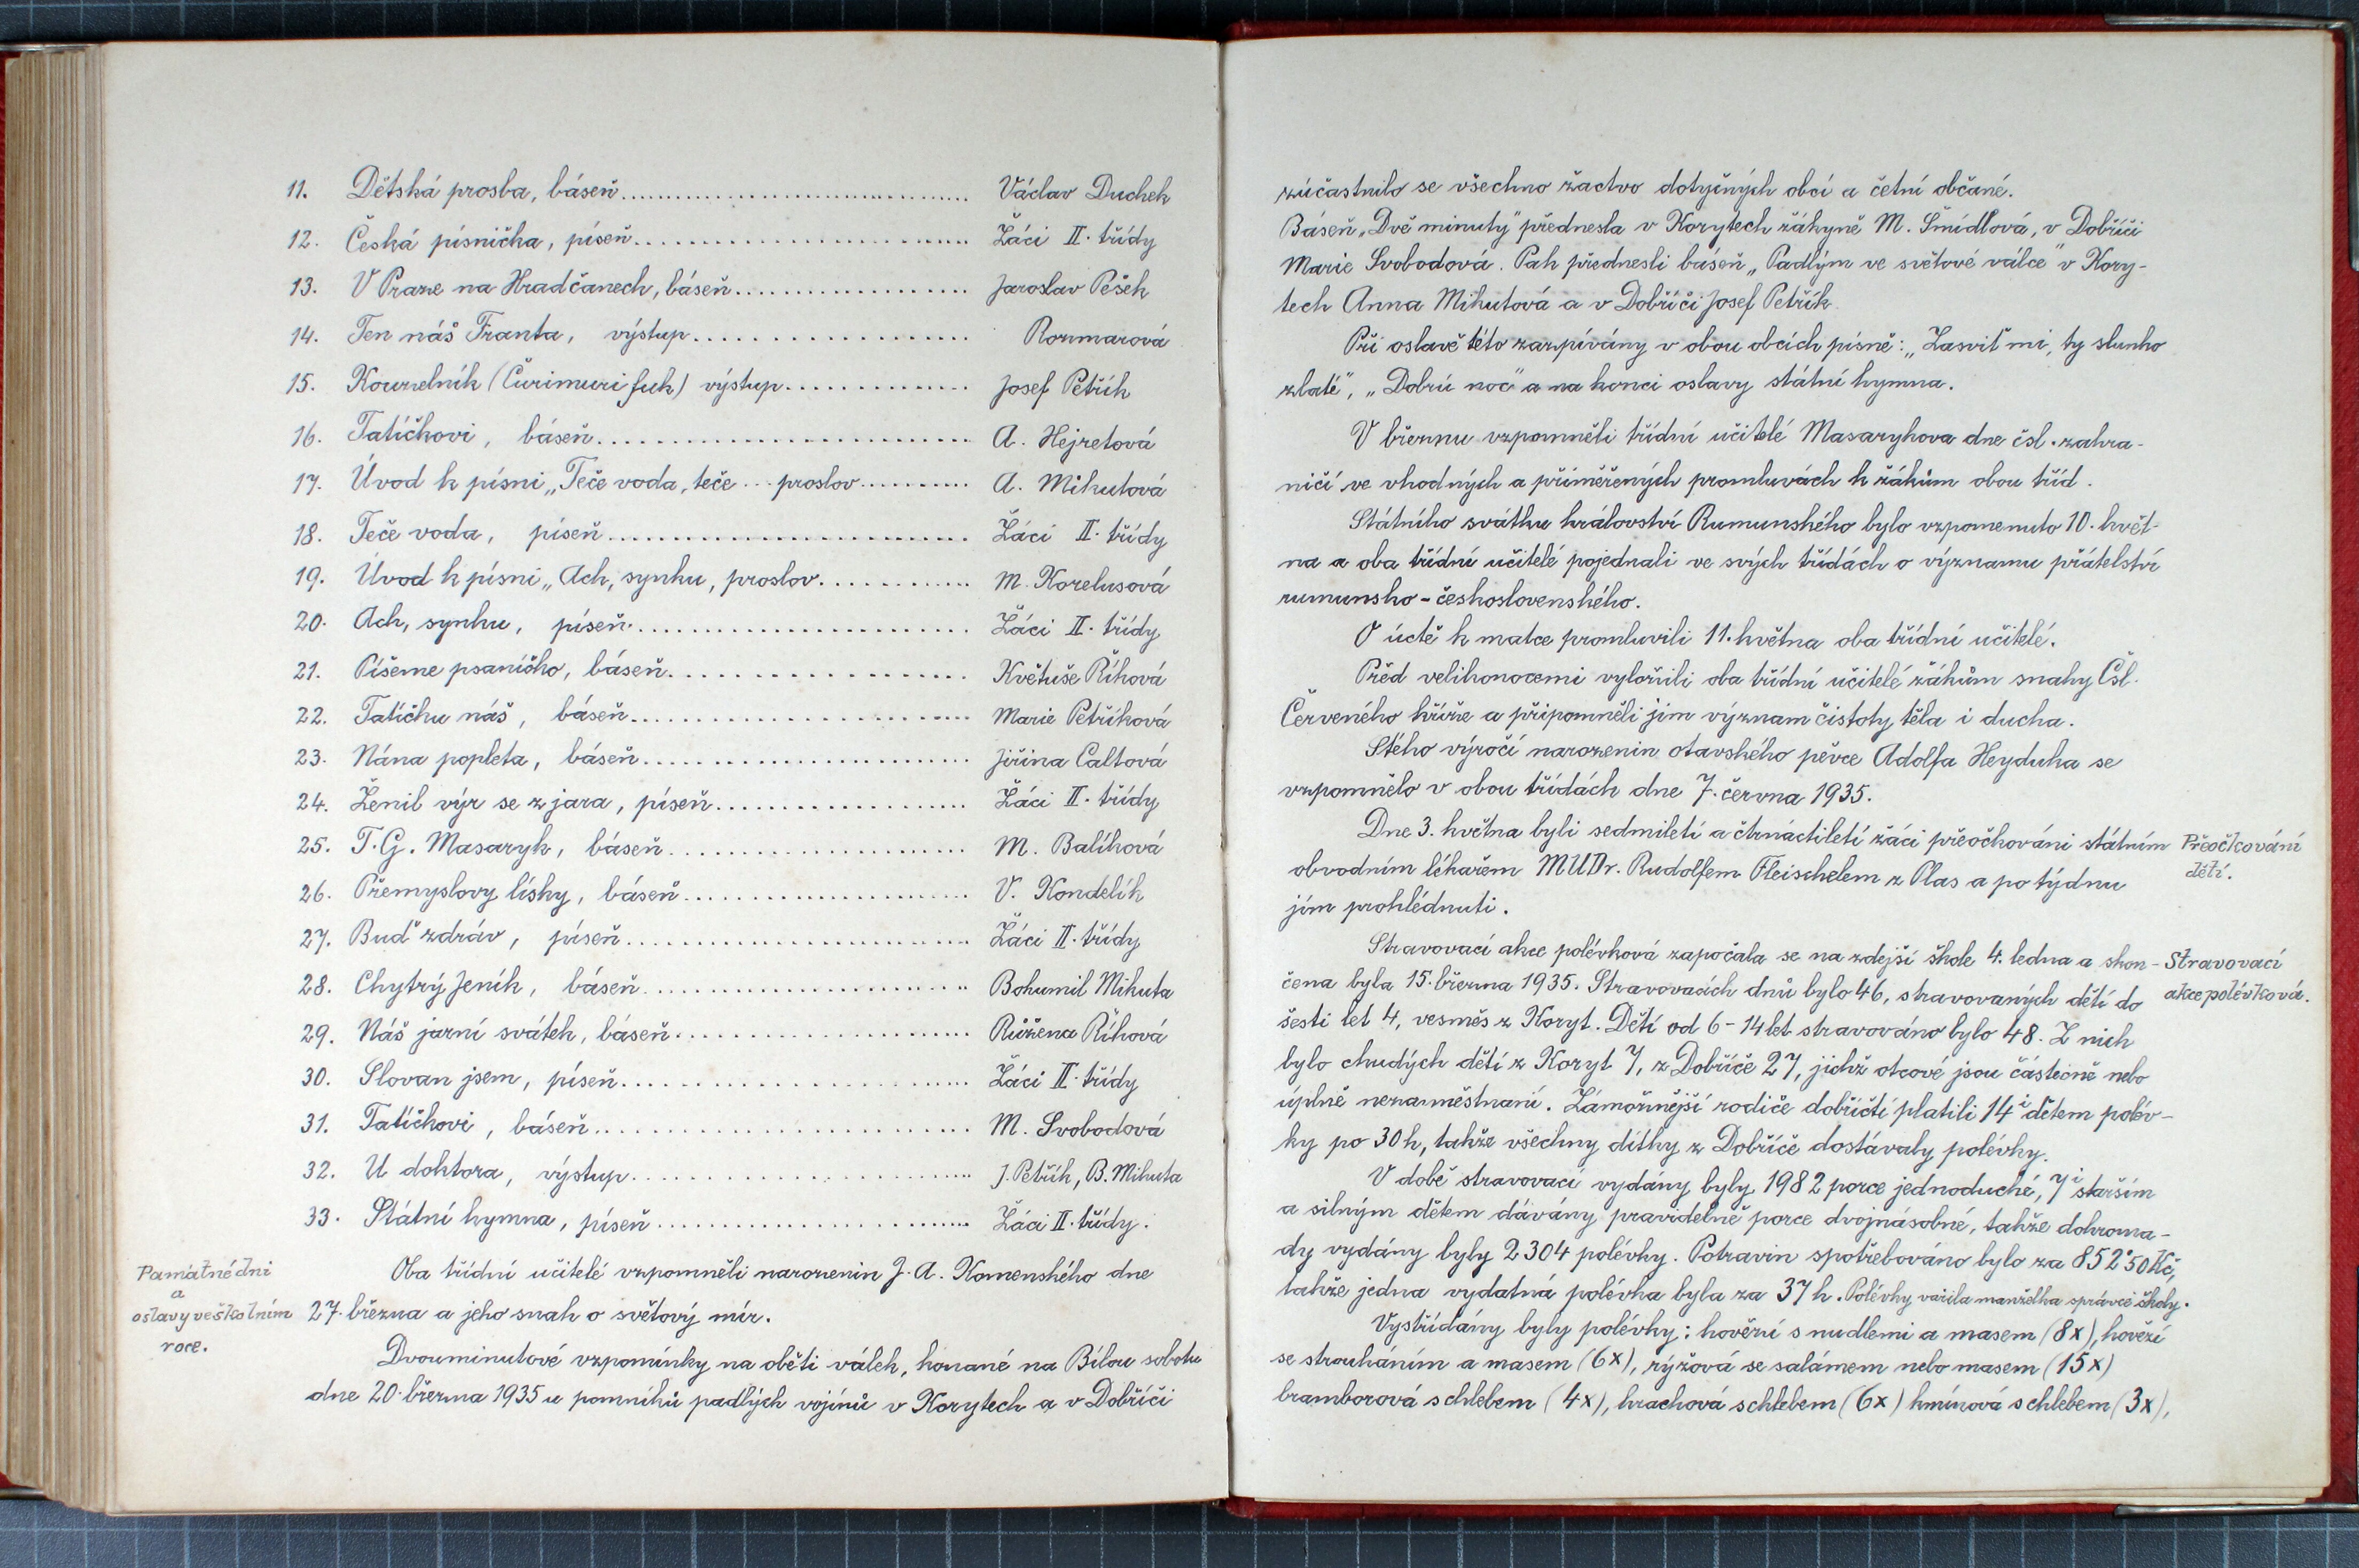 11. Dětská prosba, báseň........ Václav Duchek
12. Česká písnička, píseň........ Žáci II. třídy
13. V Praze na Hradčanech, báseň........ Jaroslav Pešek
14. Ten náš Franta, výstup........ Rozmarová
15. Kouzelník (Čurimuri fuk) výstup........ Josef Petřík
16. Tatíčkovi, báseň........ A. Hejretová
17. Úvod k písni „Teče voda, teče... proslov........ A. Mikutová
18. Teče voda, píseň........ Žáci II. třídy
19. Úvod k písni „Ach, synku, proslov........ M. Korelusová
20. Ach, synku, píseň........ Žáci II. třídy
21. Píšeme psaníčko, báseň........ Květuše Říhová
22. Tatíčku náš, báseň........ Marie Petříková
23. Nána popleta, báseň........ Jiřina Caltová
24. Ženil výr se z jara, píseň........ Žáci II. třídy
25. T. G. Masaryk, báseň........ M. Balíková
26. Přemyslovy lísky, báseň........ V. Kondelík
27. Buď zdráv, píseň........ Žáci II. třídy
28. Chytrý Jeník, báseň........ Bohumil Mikuta
29. Náš jarní svátek, báseň........ Růžena Říhová
30. Slovan jsem, píseň........ Žáci II. třídy
31. Tatíčkovi, báseň........ M. Svobodová
32. U doktora, výstup........ J. Petřík, B. Mikuta
33. Státní hymna, píseň........ Žáci II. třídy.
Památné dni
a
oslavy ve školním
roce.
Oba třídní učitelé vzpomněli narozenin J. A. Komenského dne
27. března a jeho snah o světový mír.
Dvouminutové vzpomínky na oběti válek, konané na Bílou sobotu
dne 20. března 1935 u pomníků padlých vojínů v Korytech a v Dobříči
zúčastnilo se všechno žactvo dotyčných obcí a četní občané.
Báseň „Dvě minuty" přednesla v Korytech žákyně M. Šmídlová, v Dobříči
Marie Svobodová. Pak přednesli báseň „Padlým ve světové válce" v Kory-
tech Anna Mikutová a v Dobříči Josef Petřík.
Při oslavě této zazpívány v obou obcích písně: „Zasviť mi, ty slunko
zlaté", „Dobrú noc" a na konci oslavy státní hymna.
V březnu vzpomněli třídní učitelé Masarykova dne čsl. zahra-
ničí ve vhodných a přiměřených promluvách k žákům obou tříd.
Státního svátku království Rumunského bylo vzpomenuto 10. květ-
na a oba třídní učitelé pojednali ve svých třídách o významu přátelství
rumunsko-československého.
O úctě k matce promluvili 11. května oba třídní učitelé.
Před velikonocemi vyložili oba třídní učitelé žákům snahy Čsl.
Červeného kříže a připomněli jim význam čistoty těla i ducha.
Stého výročí narozenin otavského pěvce Adolfa Heyduka se
vzpomnělo v obou třídách dne 7. června 1935.
Dne 3. května byli sedmiletí a čtrnáctiletí žáci přeočkováni státním
obvodním lékařem MUDr. Rudolfem Fleischelem z Plas a po týdnu
jím prohlédnuti.
Přeočkování
dětí.
Stravovací akce polévková započala se na zdejší škole 4. ledna a skon-
čena byla 15. března 1935. Stravovacích dnů bylo 46, stravovaných dětí do
šesti let 4, vesměs z Koryt. Dětí od 6-14 let stravováno bylo 48. Z nich
bylo chudých dětí z Koryt 7, z Dobříče 27, jichž otcové jsou částečně nebo
úplně nezaměstnaní. Zámožnější rodiče dobříčtí platili 14i dětem polév-
ky po 30 h, takže všechny dítky z Dobříče dostávaly polévky.
Stravovací
akce polévková.
V době stravovací vydány byly 1982 porce jednoduché, 7i starším
a silným dětem dávány pravidelně porce dvojnásobné, takže dohroma-
dy vydány byly 2304 polévky. Potravin spotřebováno bylo za 852·50 Kč,
takže jedna vydatná polévka byla za 37 h. Polévky vařila manželka správce školy.
Vystřídány byly polévky: hovězí s nudlemi a masem (8x), hovězí
se strouháním a masem (6x), rýžová se salámem nebo masem (15x)
bramborová s chlebem (4x), hrachová s chlebem (6x) kmínová s chlebem (3x),